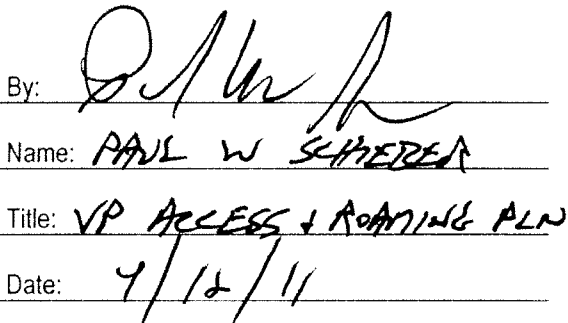 By:
Name: PAUL W SCHIEBER
Title: VP ACCESS + ROAMING PLN
Date: 4/12/11